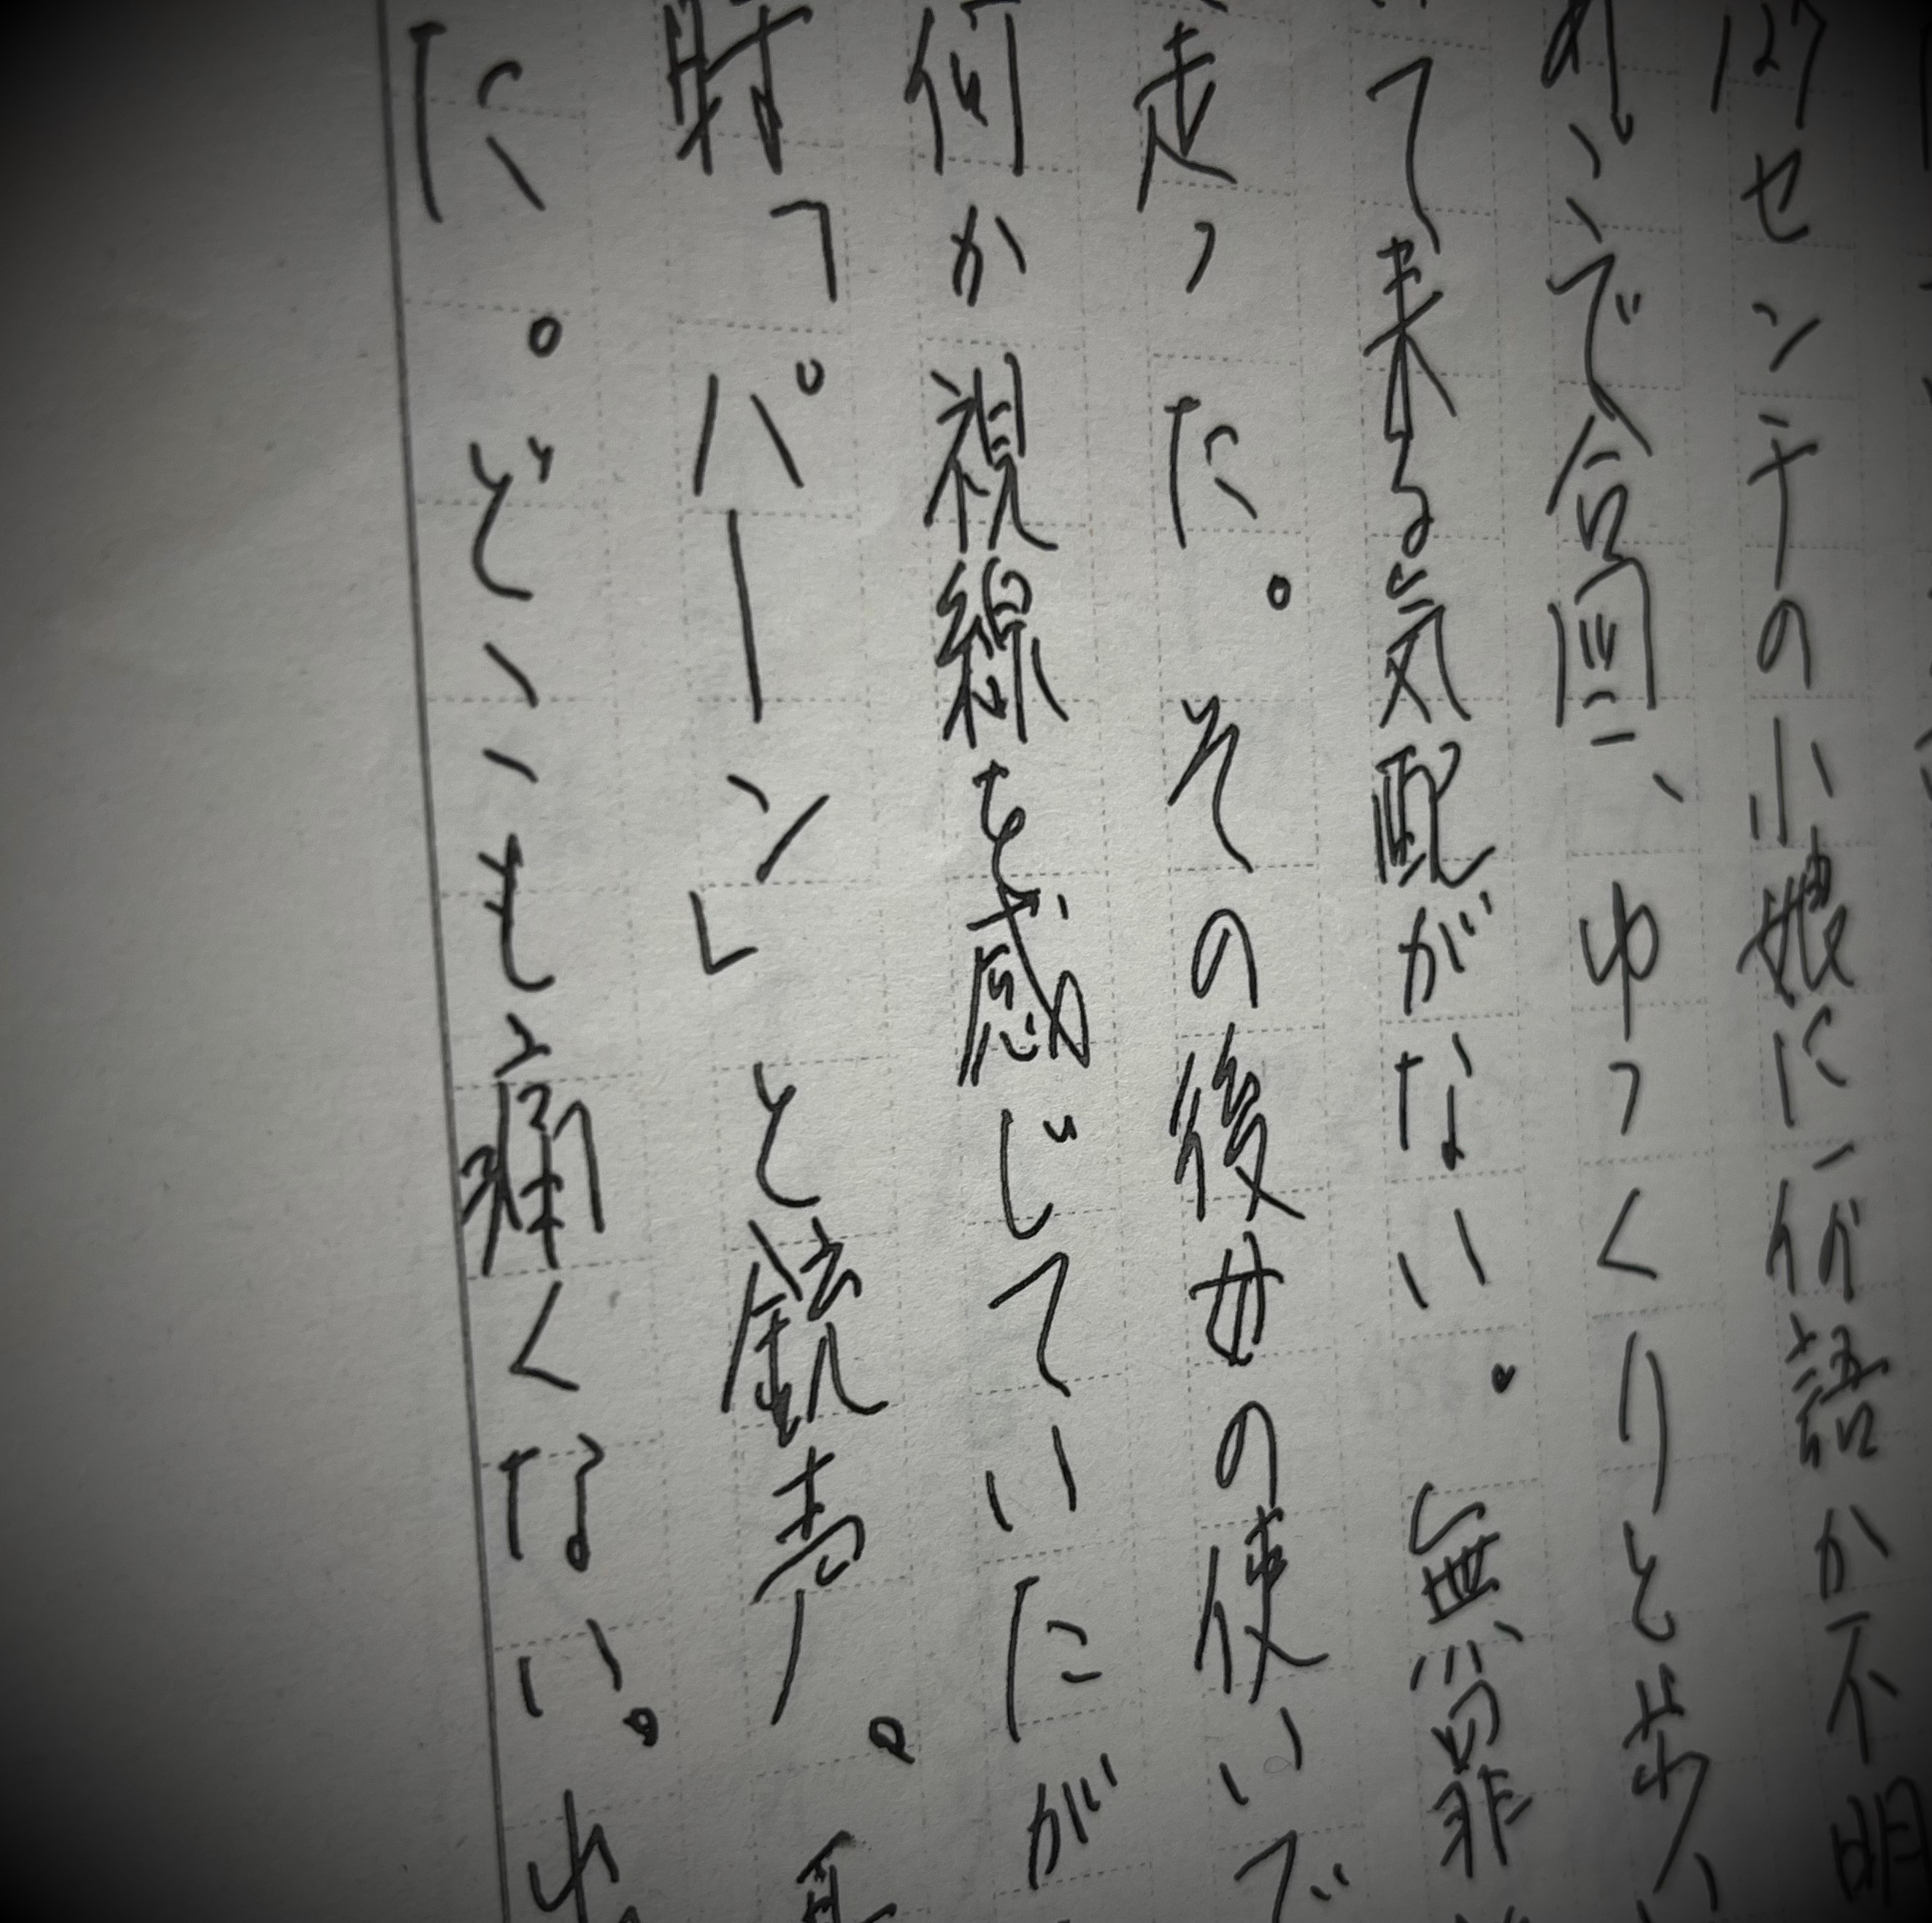 127センチの小娘に何語か不明
で合図、ゆっくりと歩
て来る気配がない。無罪
走った。その後女の使いで
何か視線を感じていたが
射「パーン」と銃声。
た。どこも痛くない。